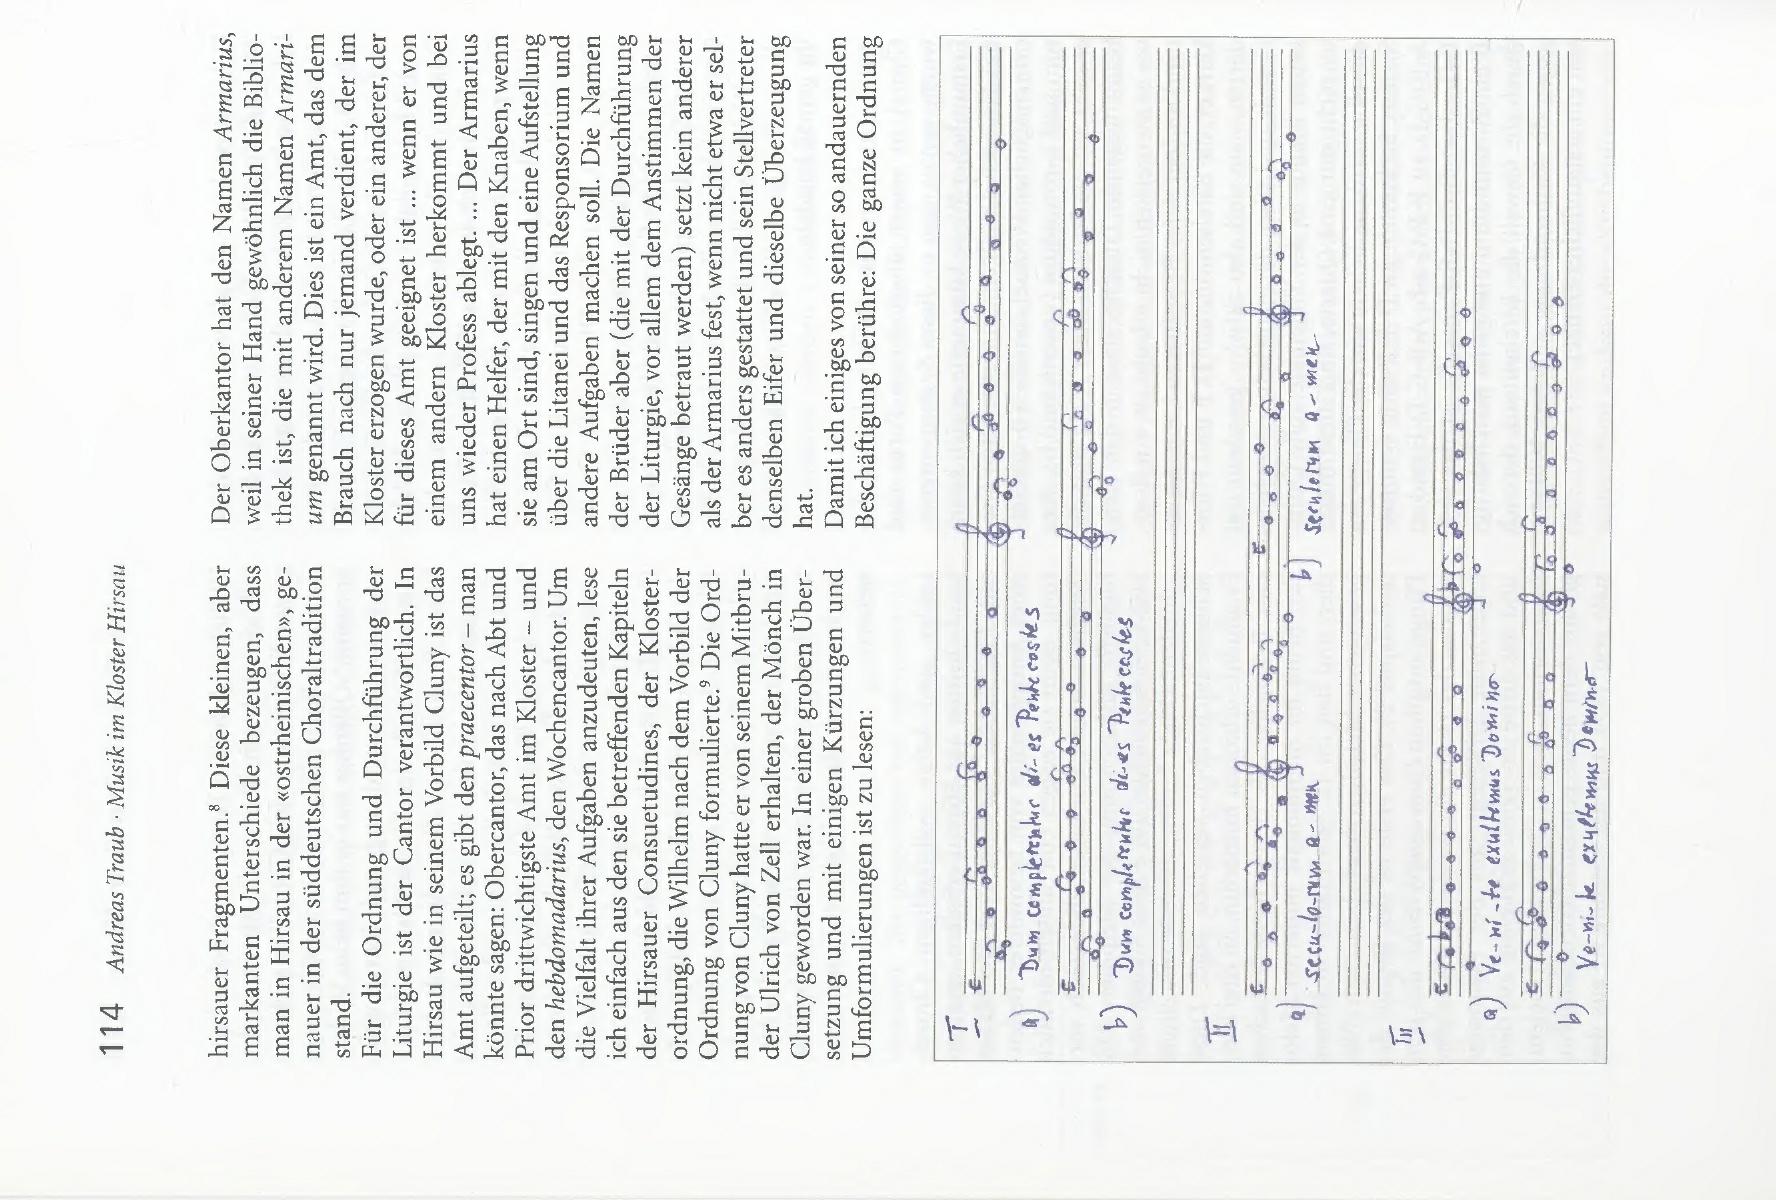 114 Andreas Traub · Musik im Kloster Hirsau
hirsauer Fragmenten.⁸ Diese kleinen, aber
markanten Unterschiede bezeugen, dass
man in Hirsau in der «ostrheinischen», ge-
nauer in der süddeutschen Choraltradition
stand.
Für die Ordnung und Durchführung der
Liturgie ist der Cantor verantwortlich. In
Hirsau wie in seinem Vorbild Cluny ist das
Amt aufgeteilt; es gibt den praecentor – man
könnte sagen: Obercantor, das nach Abt und
Prior drittwichtigste Amt im Kloster – und
den hebdomadarius, den Wochencantor. Um
die Vielfalt ihrer Aufgaben anzudeuten, lese
ich einfach aus den sie betreffenden Kapiteln
der Hirsauer Consuetudines, der Kloster-
ordnung, die Wilhelm nach dem Vorbild der
Ordnung von Cluny formulierte.⁹ Die Ord-
nung von Cluny hatte er von seinem Mitbru-
der Ulrich von Zell erhalten, der Mönch in
Cluny geworden war. In einer groben Über-
setzung und mit einigen Kürzungen und
Umformulierungen ist zu lesen:
Der Oberkantor hat den Namen Armarius,
weil in seiner Hand gewöhnlich die Biblio-
thek ist, die mit anderem Namen Armari-
um genannt wird. Dies ist ein Amt, das dem
Brauch nach nur jemand verdient, der im
Kloster erzogen wurde, oder ein anderer, der
für dieses Amt geeignet ist ... wenn er von
einem andern Kloster herkommt und bei
uns wieder Profess ablegt. ... Der Armarius
hat einen Helfer, der mit den Knaben, wenn
sie am Ort sind, singen und eine Aufstellung
über die Litanei und das Responsorium und
andere Aufgaben machen soll. Die Namen
der Brüder aber (die mit der Durchführung
der Liturgie, vor allem dem Anstimmen der
Gesänge betraut werden) setzt kein anderer
als der Armarius fest, wenn nicht etwa er sel-
ber es anders gestattet und sein Stellvertreter
denselben Eifer und dieselbe Überzeugung
hat.
Damit ich einiges von seiner so andauernden
Beschäftigung berühre: Die ganze Ordnung
I
a) Dum complerentur di-es Pentecostes
b) Dum complerentur di-es Pentecostes
II
a) secu-lo-rum a-men
b) seculorum a-men
III
a) Ve-ni-te exultemus Domino
b) Ve-ni-te exultemus Domino